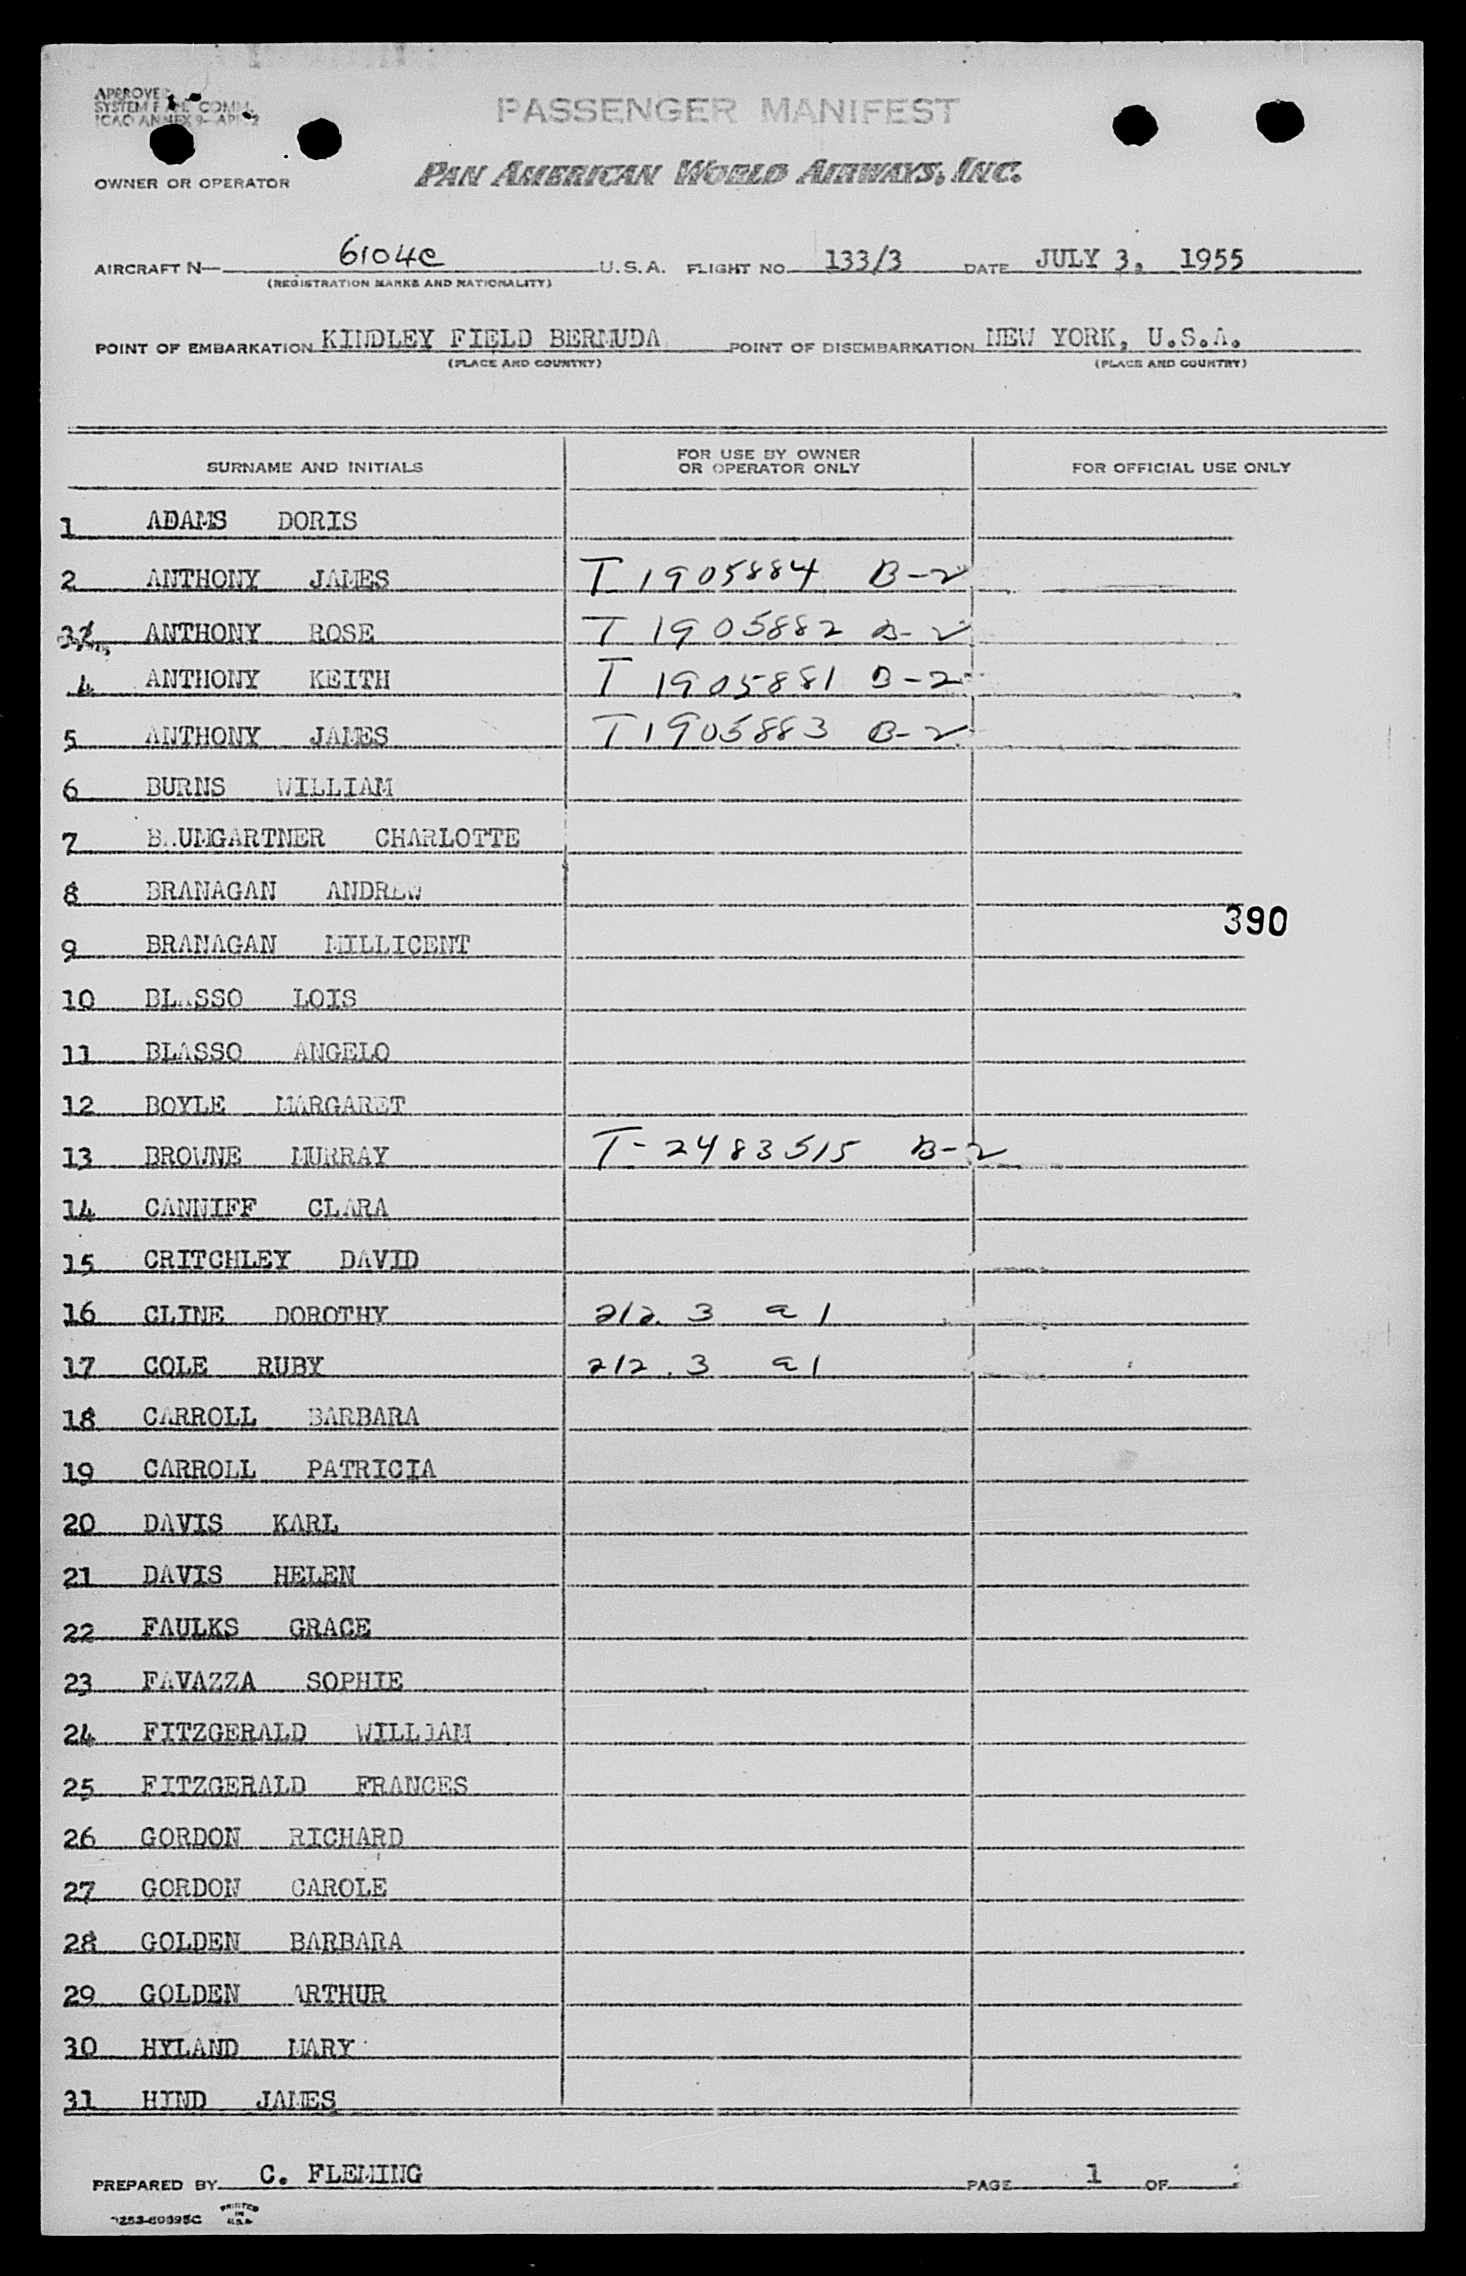 APPROVED
SYSTEM F COMM.
ICAO ANNEX 9
PASSENGER MANIFEST
PAN AMERICAN WORLD AIRWAYS, INC.
OWNER OR OPERATOR
AIRCRAFT N— 6104C U.S.A. FLIGHT NO. 133/3 DATE JULY 3, 1955
(REGISTRATION MARKS AND NATIONALITY)
POINT OF EMBARKATION KINDLEY FIELD BERMUDA POINT OF DISEMBARKATION NEW YORK, U.S.A.
(PLACE AND COUNTRY) (PLACE AND COUNTRY)
SURNAME AND INITIALS FOR USE BY OWNER OR OPERATOR ONLY FOR OFFICIAL USE ONLY
1 ADAMS DORIS
2 ANTHONY JAMES T 1905884 B-2
3 ANTHONY ROSE T 1905882 B-2
4 ANTHONY KEITH T 1905881 B-2
5 ANTHONY JAMES T 1905883 B-2
6 BURNS WILLIAM
7 BAUMGARTNER CHARLOTTE
8 BRANAGAN ANDREW
390
9 BRANAGAN MILLICENT
10 BLASSO LOIS
11 BLASSO ANGELO
12 BOYLE MARGARET
13 BROWNE MURRAY T-2483515 B-2
14 CANNIFF CLARA
15 CRITCHLEY DAVID
16 CLINE DOROTHY 212.3 a 1
17 COLE RUBY 212.3 a 1
18 CARROLL BARBARA
19 CARROLL PATRICIA
20 DAVIS KARL
21 DAVIS HELEN
22 FAULKS GRACE
23 FAVAZZA SOPHIE
24 FITZGERALD WILLIAM
25 FITZGERALD FRANCES
26 GORDON RICHARD
27 GORDON CAROLE
28 GOLDEN BARBARA
29 GOLDEN ARTHUR
30 HYLAND MARY
31 HIND JAMES
PREPARED BY C. FLEMING PAGE 1 OF
PRINTED IN U.S.A.